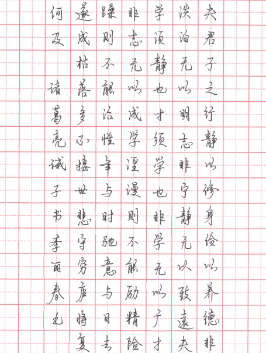 夫君子之行静以修身俭以养德非
淡泊无以明志非宁静无以致远夫
学须静也才须学也非学无以广才
非志无以成学淫慢则不能励精险
躁则不能治性年与时驰意与日去
遂成枯落多不接世悲守穷庐将复
何及 诸葛亮诫子书李丽春